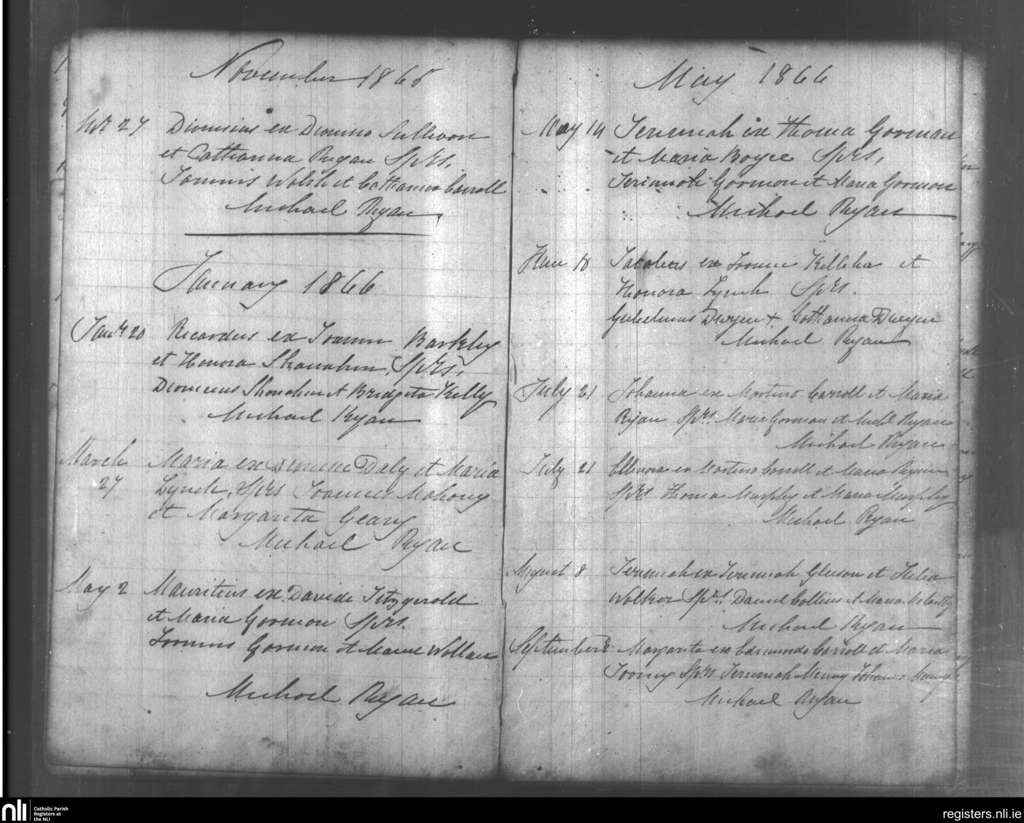 November 1865
27 Dionisius ex Dionisio Sullivan
et Catharina Ryan Sprs.
Joannis Walsh et Catharina Carroll
Michael Ryan
January 1866
Jany 20 Ricardus ex Joanne Barkley
et Honora Shanahan, Sprs.
Dionicius Shanahan et Bridgeta Kelly
Michael Ryan
March Maria ex Daly et Maria
27 Lynch, Sprs Joannes Mahony
et Margarita Geary
Michael Ryan
May 2 Mauritius ex Davide Fitzgerald
et Maria Gorman Sprs.
Joannis Gorman et Maria
Michael Ryan
May 1866
May 14 Jeremiah ex Thoma Gorman
et Maria Boyce Sprs,
Jerimiah Gorman et Maria Gorman
Michael Ryan
18 Jacobus ex Joanne Killeha et
Honora Lynch Sprs.
Gulielmus Dwyer + Catharina Dwyer
Michael Ryan
July 21 Johanna ex Martino Carroll et Maria
Ryan Sprs. Maria Gorman et Michl Ryan
Michael Ryan
July 21 Ellenora ex Martino Carroll et Maria Ryan
Sprs Thoma Murphy et Maria Murphy
Michael Ryan
August 8 Jeremiah ex Jeremiah Gleeson et Julia
Walker Sprs Daniel Collins et Maria McCarthy
Michael Ryan
September 8 Margarita ex Edmundo Carroll et Maria
Sprs Jeremiah Johanna
Michael Ryan
nli Catholic Parish
Registers at
the NLI
registers.nli.ie